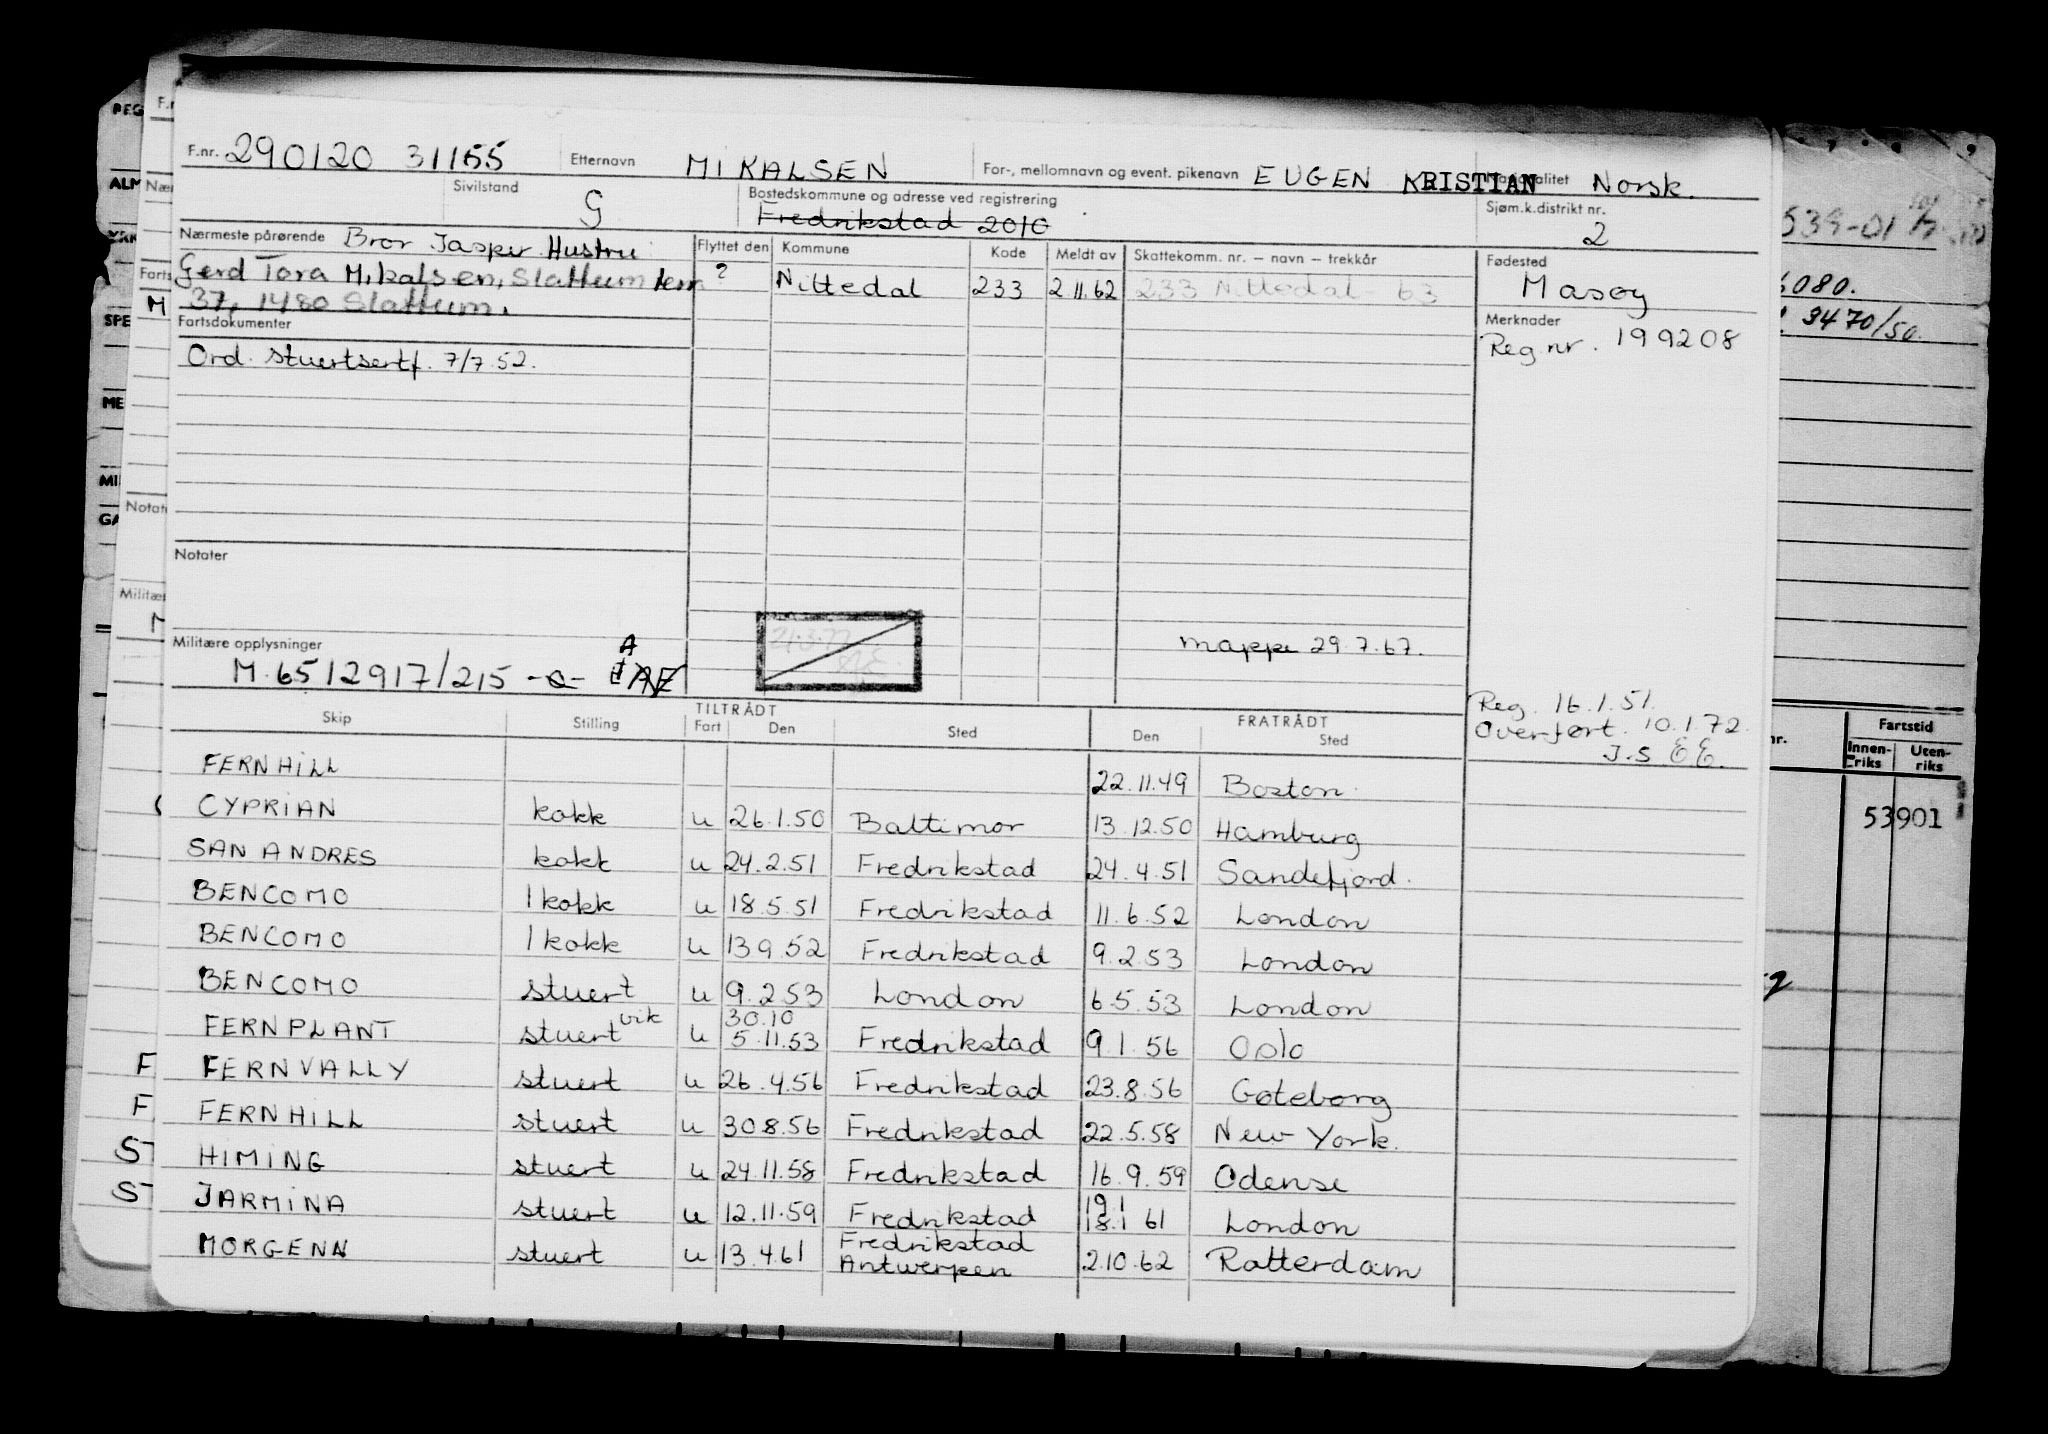 F.nr. 290120 31155 Etternavn MIKALSEN For-, mellomnavn og event. pikenavn EUGEN KRISTIAN Norsk.
Sivilstand G Bostedskommune og adresse ved registrering Fredrikstad 2010 Sjøm.k.distrikt nr. 2
Nærmeste pårørende Bror Jasper Hustru Flyttet den Kommune Kode Meldt av Skattekomm. nr. – navn – trekkår Fødested
Gerd Tora Mikalsen, Slattum ? Nittedal 233 2.11.62 233 Nittedal - 63 Masøy
37, 1480 Slattum.
Fartsdokumenter Merknader
Ord. stuertsertf. 7/7.52. Reg. nr. 199208
Notater
Militære opplysninger mappe 29.7.67.
M. 6512917/215
Reg. 16.1.51.
Overført. 10.1.72.
TILTRÅDT FRATRÅDT
Skip Stilling Fart Den Sted Den Sted
FERNHILL 22.11.49 Boston
CYPRIAN kokk u 26.1.50 Baltimor 13.12.50 Hamburg
SAN ANDRES kokk u 24.2.51 Fredrikstad 24.4.51 Sandefjord.
BENCOMO 1 kokk u 18.5.51 Fredrikstad 11.6.52 London
BENCOMO 1 kokk u 13 9.52 Fredrikstad 9.2.53 London
BENCOMO stuert u 9.2.53 London 6.5.53 London
vik 30.10
FERNPLANT stuert u 5.11.53 Fredrikstad 9.1.56 Oslo
FERNVALLY stuert u 26.4.56 Fredrikstad 23.8.56 Gøteborg
FERNHILL stuert u 30.8.56 Fredrikstad 22.5.58 New York.
HIMING stuert u 24.11.58 Fredrikstad 16.9.59 Odense
19.1
JARMINA stuert u 12.11.59 Fredrikstad 18.1 61 London
Fredrikstad
MORGENN stuert u 13.4.61 Antwerpen 2.10.62 Rotterdam
3470/50.
Fartstid
Innenriks Utenriks
53901